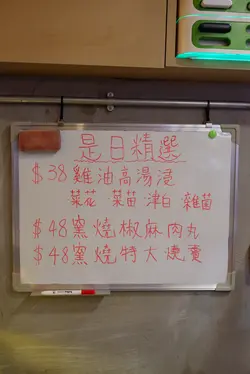 是日精選
$38雞油高湯浸
菜花 菜苗 津白 雜菌
$48窯燒椒麻肉丸
$48窯燒特大墨